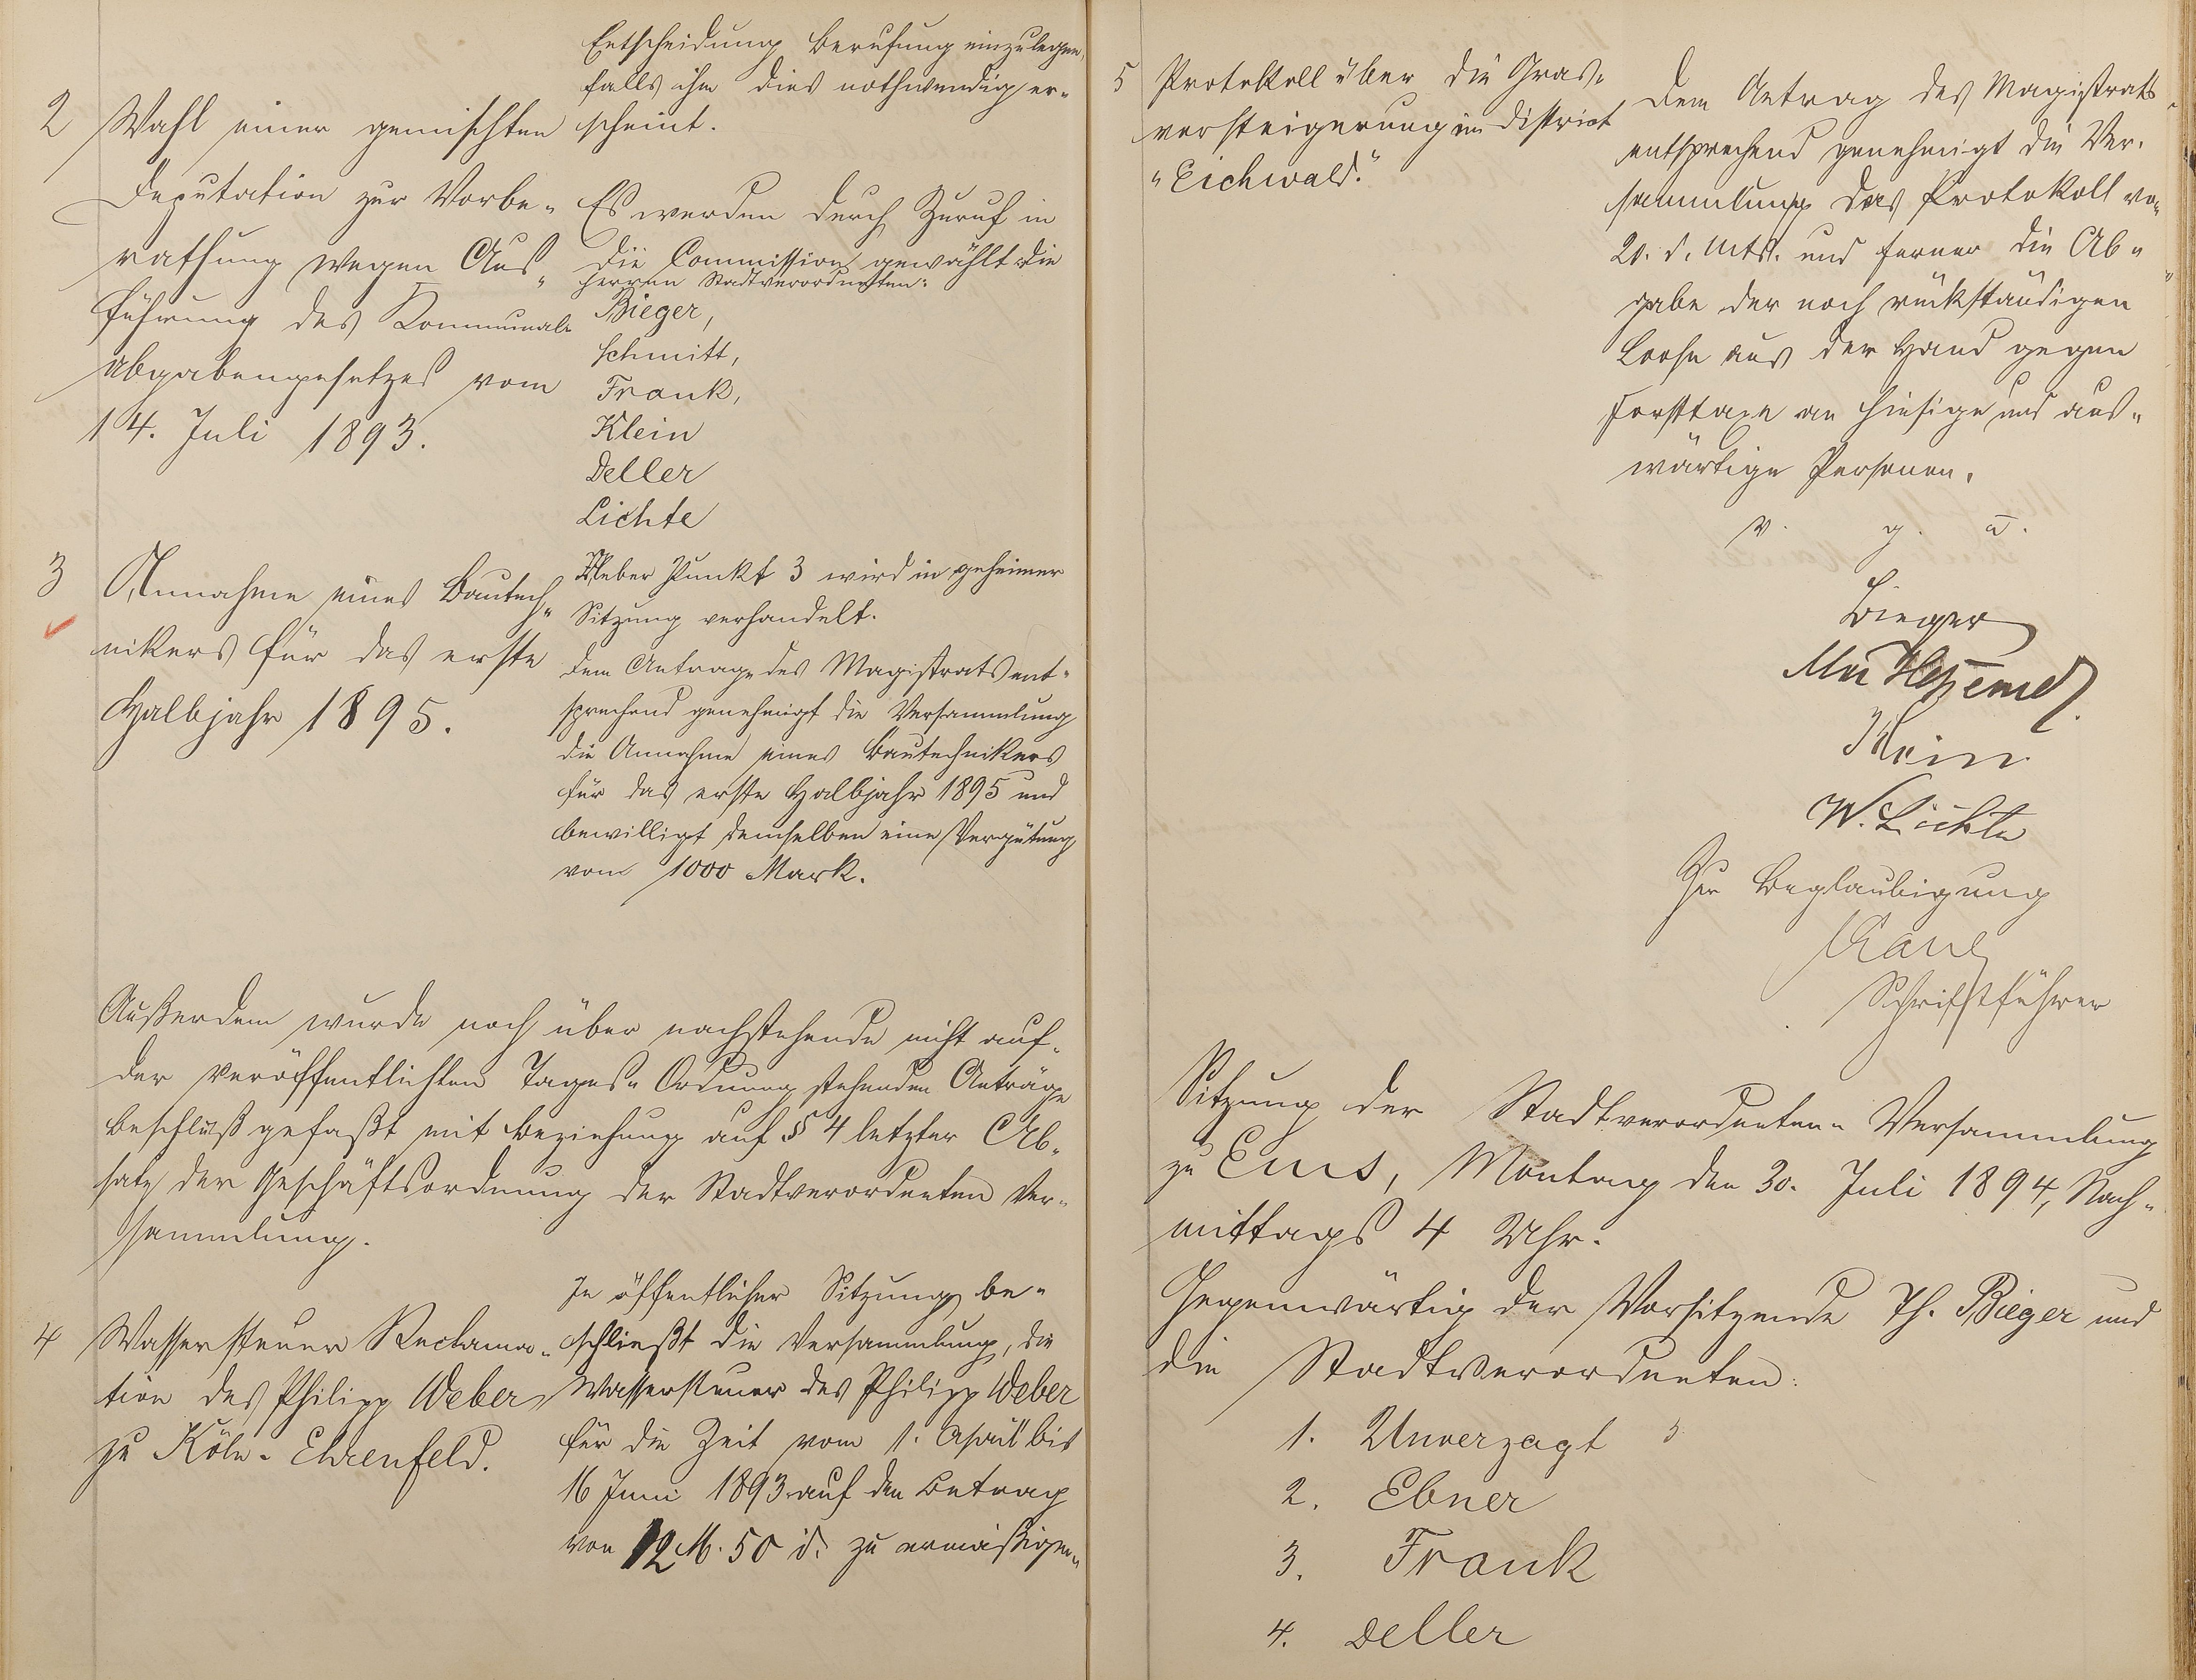 Entscheidung Berufung einzulegen,
falls ihm dies nothwendig er-
scheint.
2 Wahl einer gemischten
Deputation zur Vorbe-
rathung wegen Aus-
führung des Kommunal-
abgabengesetzes vom
14. Juli 1893.
Es werden durch Zuruf in
die Commission gewählt die
Herren Stadtverordneten:
Bieger,
Schmitt,
Frank,
Klein
Deller
Lichte
3 Annahme eines Bautech-
nikers für das erste
Halbjahr 1895.
Ueber Punkt 3 wird in geheimer
Sitzung verhandelt.
Dem Antrage des Magistrats ent-
sprechend genehmigt die Versammlung
die Annahme eines Bautechnikers
für das erste Halbjahr 1895 und
bewilligt demselben eine Vergütung
vom 1000 Mark.
Außerdem wurde noch über nachstehende nicht auf
der veröffentlichten Tages-Ordnung stehenden Anträge
Beschluß gefaßt mit Beziehung auf § 4 letzter Ab-
satz der Geschäftsordnung der Stadtverordneten Ver-
sammlung.
4 Wassersteuer Reclama-
tion des Philipp Weber
zu Köln-Ehrenfeld.
In öffentlicher Sitzung be-
schließt die Versammlung, die
Wassersteuer des Philipp Weber
für die Zeit vom 1. April bis
16 Juni 1893 auf den Betrag
von 12 M. 50 d. zu ermäßigen.
5 Protokoll über die Gras-
versteigerung im District
"Eichwald."
Dem Antrag des Magistrats
entsprechend genehmigt die Ver-
sammlung das Protokoll vom
20. d. Mts. und ferner die Ab-
gabe der noch rückständigen
Loose aus der Hand gegen
Forsttaxe an hiesige und aus-
wärtige Personen.
v. g. u.
Bieger
Klein
W. Lichte
Zur Beglaubigung
Schriftführer
Sitzung der Stadtverordneten-Versammlung
zu Ems, Montag den 30. Juli 1894, Nach-
mittags 4 Uhr.
Gegenwärtig der Vorsitzende Th. Bieger und
die Stadtverordneten:
1. Unverzagt
2. Ebner
3. Frank
4. Deller